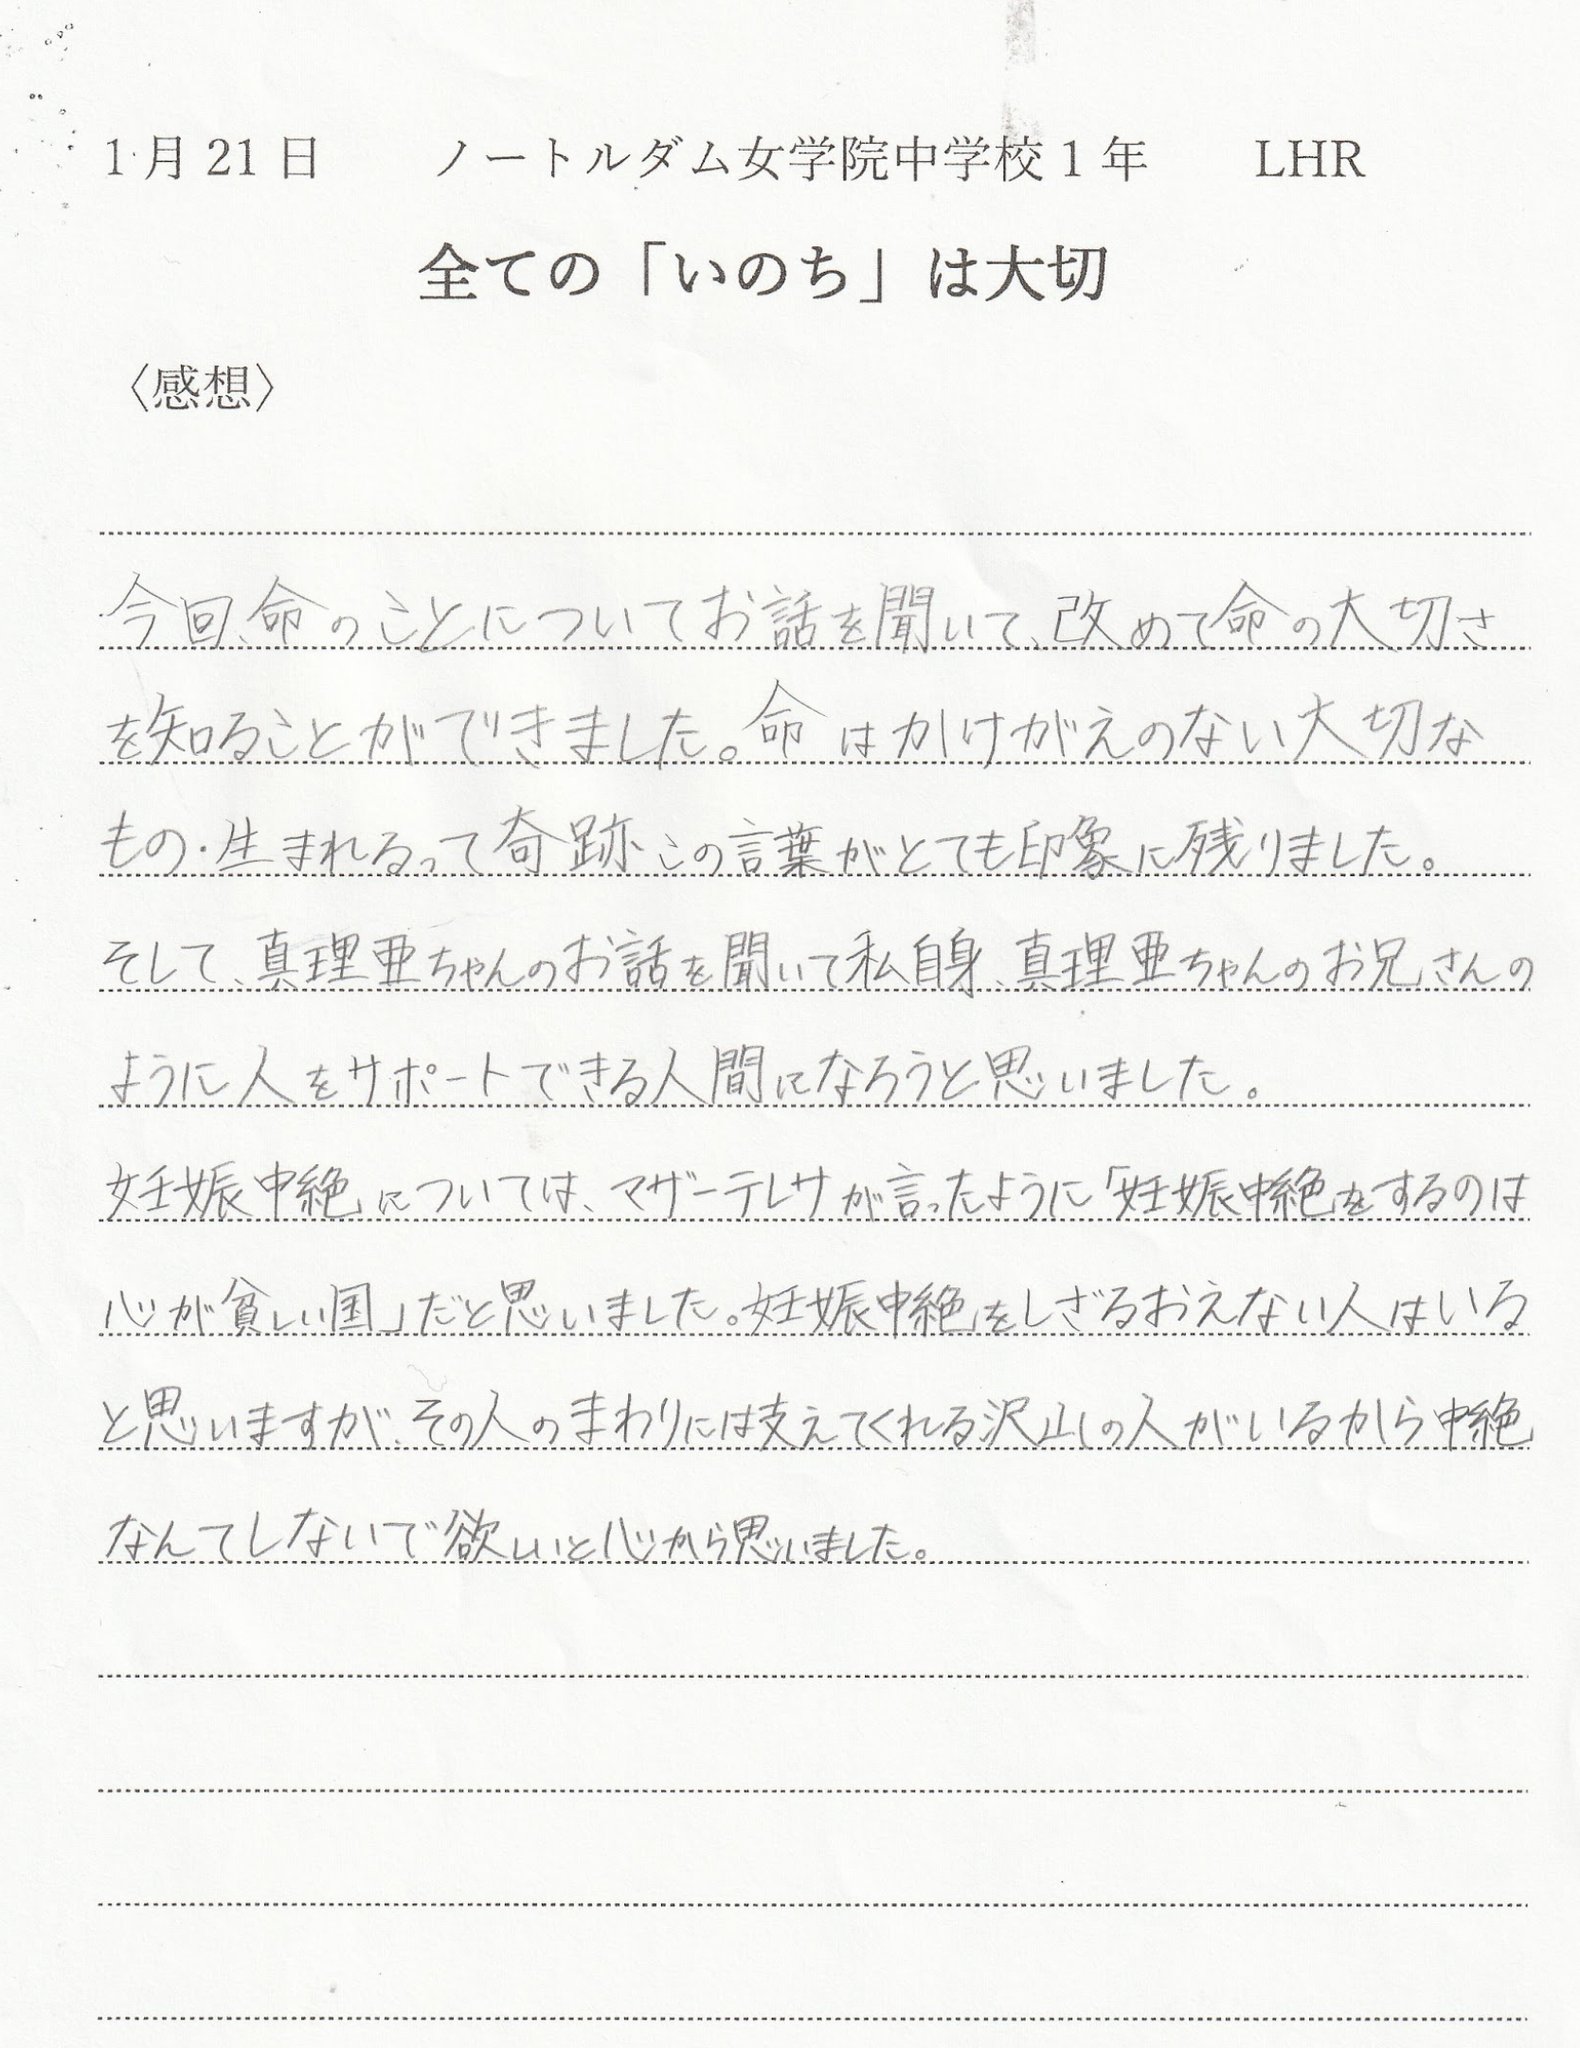 1月21日 ノートルダム女学院中学校1年 LHR
全ての「いのち」は大切
〈感想〉
今回、命のことについてお話を聞いて、改めて命の大切さ
を知ることができました。命はかけがえのない大切な
もの・生まれるって奇跡この言葉がとても印象に残りました。
そして、真理亜ちゃんのお話を聞いて私自身、真理亜ちゃんのお兄さんの
ように人をサポートできる人間になろうと思いました。
妊娠中絶については、マザーテレサが言ったように「妊娠中絶をするのは
心が貧しい国」だと思いました。妊娠中絶をしざるおえない人はいる
と思いますが、その人のまわりには支えてくれる沢山の人がいるから中絶
なんてしないで欲しいと心から思いました。